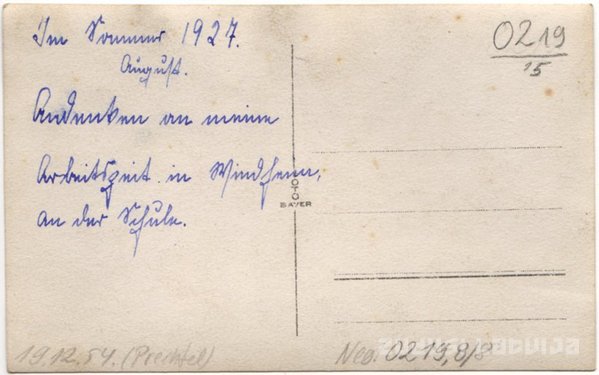 Im Sommer 1927.
August.
Andenken an meine
Arbeitszeit in Windheim,
an der Schule.
0219
15
FOTO
BAYER
19.12.54. (Prechtel)
Neg. 0219,8/8